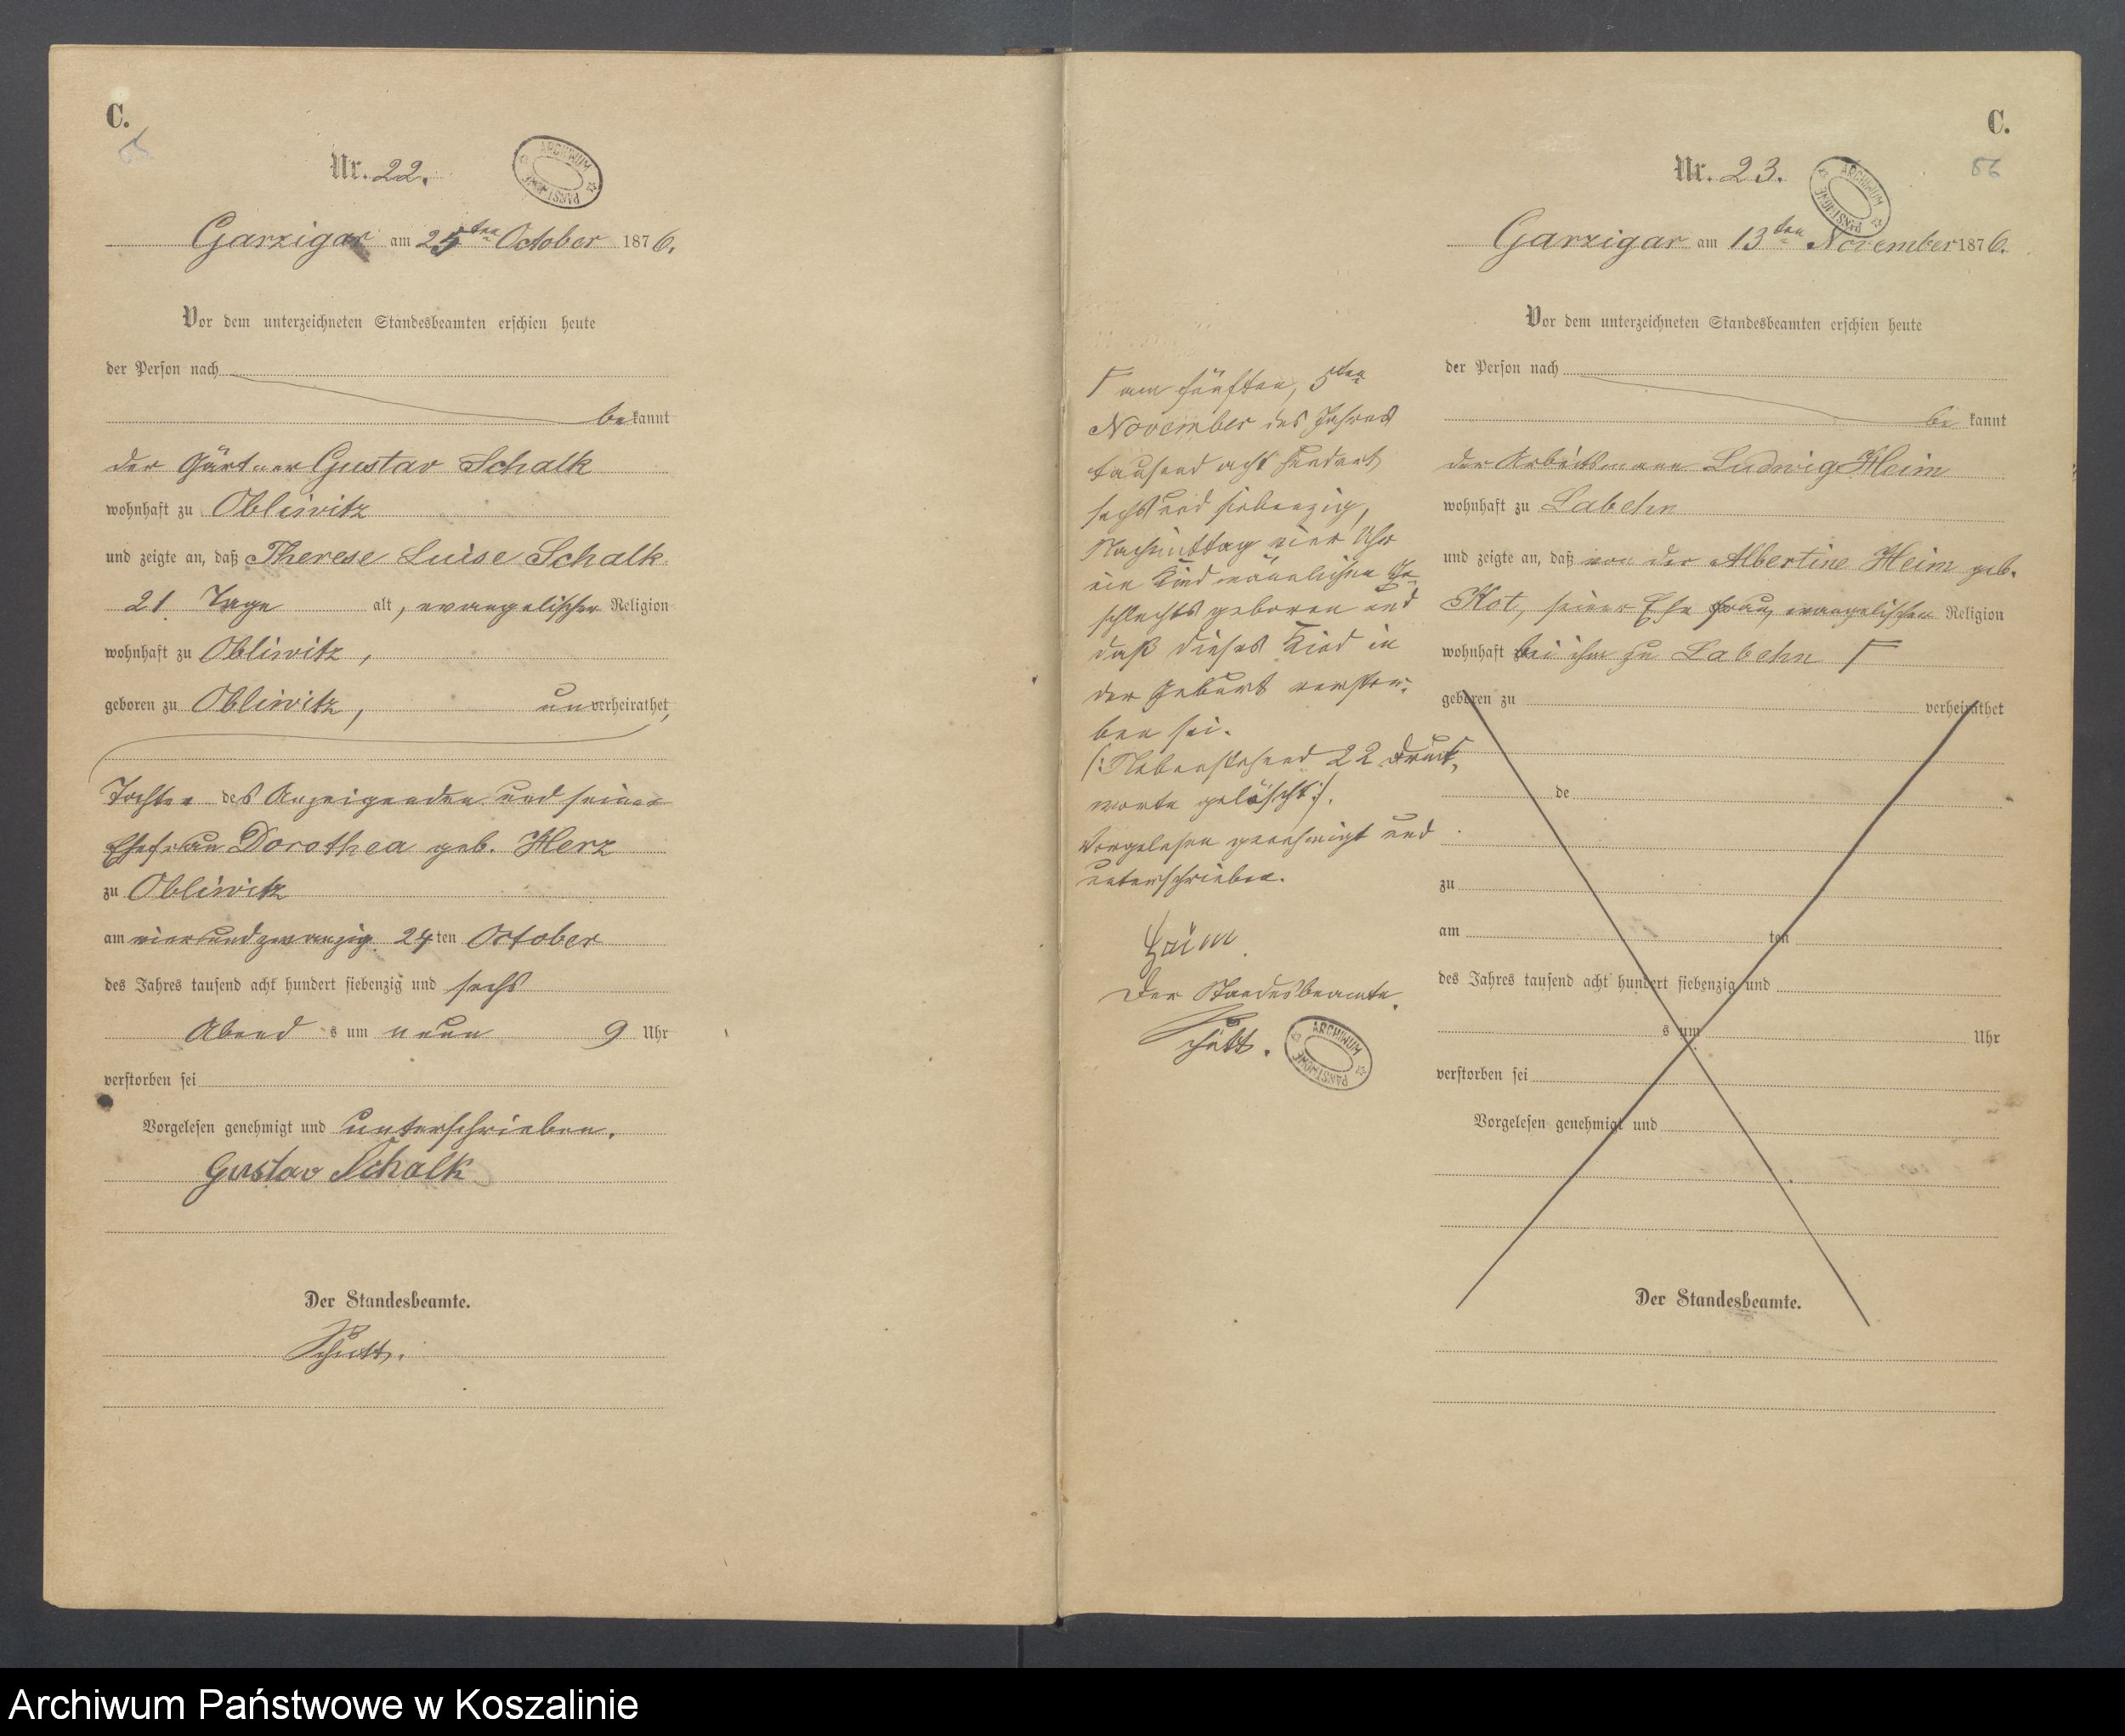 C.
Nr. 22.
ARCHIWUM PAŃSTWOWE
Garzigar am 25ten October 1876.
Vor dem unterzeichneten Standesbeamten erschien heute
der Person nach
bekannt
der Gärtner Gustav Schalk
wohnhaft zu Obliwitz
und zeigte an, daß Therese Luise Schalk
21 Tage alt, evangelischer Religion
wohnhaft zu Obliwitz,
geboren zu Obliwitz, unverheirathet,
Tochter des Anzeigenden und seiner
Ehefrau Dorothea geb. Herz
zu Obliwitz
am vierundzwanzig 24ten October
des Jahres tausend acht hundert siebenzig und sechs
Abend s um neun 9 Uhr
verstorben sei
Vorgelesen genehmigt und unterschrieben.
Gustav Schalk
Der Standesbeamte.
Schütt.
C.
56
Nr. 23.
ARCHIWUM PAŃSTWOWE
Garzigar am 13ten November 1876.
Vor dem unterzeichneten Standesbeamten erschien heute
der Person nach
be kannt
der Arbeitsmann Ludwig Heim
wohnhaft zu Labehn
und zeigte an, daß von der Albertine Heim geb.
Kot, seiner Ehefrau, evangelischer Religion
wohnhaft bei ihm zu Labehn Γ
geboren zu verheirathet
de
zu
am ten
des Jahres tausend acht hundert siebenzig und
s um Uhr
verstorben sei
Vorgelesen genehmigt und
Der Standesbeamte.
Γ am fünften, 5ten
November des Jahres
tausend acht hundert
sechs und siebenzig,
Nachmittag vier Uhr
ein Kind männlichen Ge-
schlechts geboren und
daß dieses Kind in
der Geburt verstor-
ben sei.
(: Nebenstehend 22 Druck-
worte gelöscht :).
Vorgelesen genehmigt und
unterschrieben.
Heim.
Der Standesbeamte.
Schütt.
ARCHIWUM PAŃSTWOWE
Archiwum Państwowe w Koszalinie